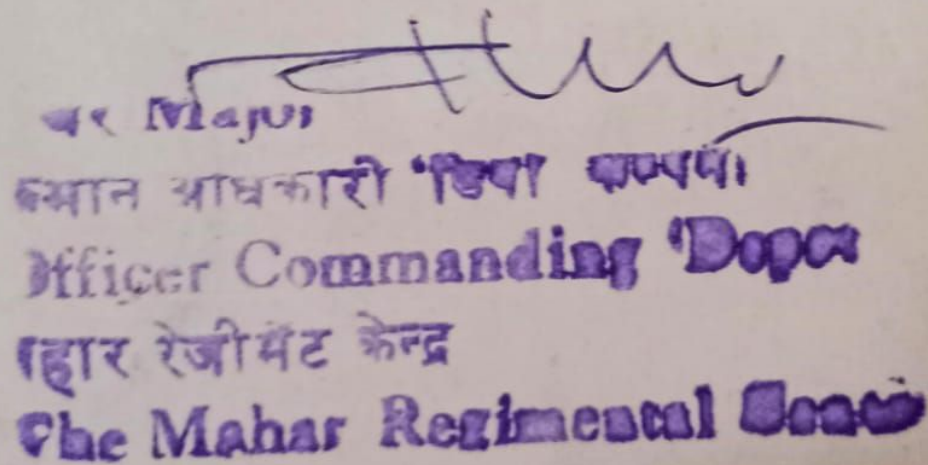 Major
कमान अधिकारी डिपो कम्पनी
Officer Commanding 'Depot
महार रेजीमेंट केन्द्र
The Mahar Regimental Centre